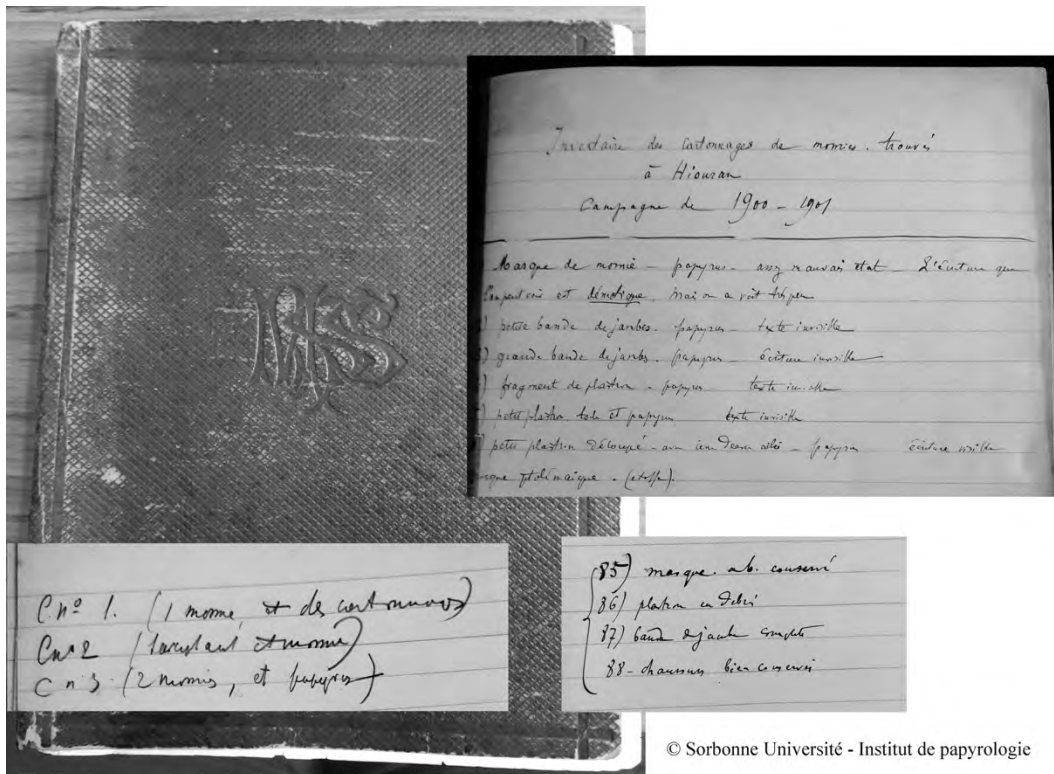 MSS
Inventaire des cartonnages de momies. trouvés
à Hiouran
Campagne de 1900 - 1901
Masque de momie - papyrus - assez mauvais état - L'écriture que
l'on peut voir est démotique. mais on a voit très peu
) petite bande de jambes. papyrus - texte invisible
) grande bande de jambes. papyrus - écriture invisible
) fragment de plastron - papyrus texte invisible
) petit plastron. toile et papyrus texte invisible
) petit plastron découpé - avec ailés - papyrus écriture visible
ptolémaïque. (étoffe).
C nº 1. (1 momie, et des cartonnages)
C nº 2 ( et momie)
C n 3 (2 momies, et papyrus)
85) masque ab. conservé
86) plastron en débris
87) bande de jambe complète
88 - chaussures bien conservées
© Sorbonne Université - Institut de papyrologie